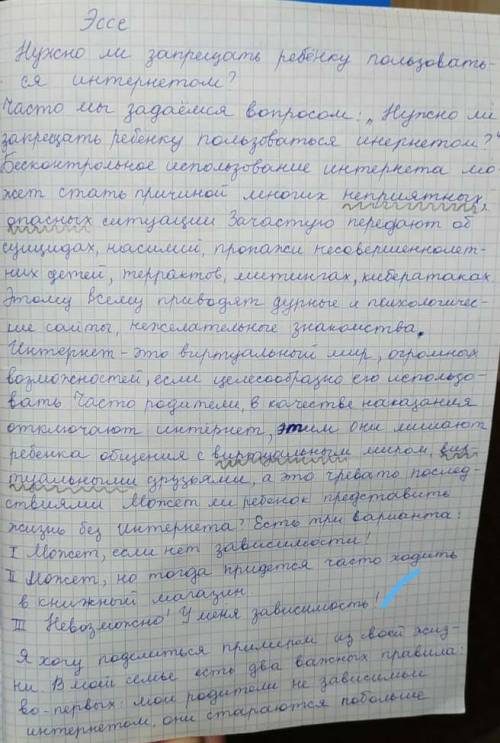 Эссе
Нужно ли запрещать ребёнку пользовать-
ся интернетом?
Часто мы задаёмся вопросом: „Нужно ли
запрещать ребенку пользоваться инернетом?“
Бесконтрольное использование интернета мо
жет стать причиной многих неприятных,
опасных ситуации Зачастую передают об
суицидах, насилий, пропажи несовершеннолет-
них детей, террактов, митингах, кибератаках.
Этому всему приводят дурные и психологичес-
кие сайты, нежелательные знакомства.
Интернет - это виртуальный мир, огромных
возможностей, если целесообразно его использо-
вать Часто родители, в качестве наказания
отключают интернет, этим они лишают
ребенка общения с виртуальным миром, вир
туальными друзьями, а это чревато послед-
ствиями Может ли ребенок представить
жизнь без интернета? Есть три варианта:
I Может, если нет зависимости!
II Может, но тогда придется часто ходить
в книжный магазин
III Невозможно! У меня зависимость!
Я хочу поделиться примером из своей жиз-
ни В моей семье есть два важных правила:
во-первых: мои родители не зависимы
интернетом, они стараются побольше